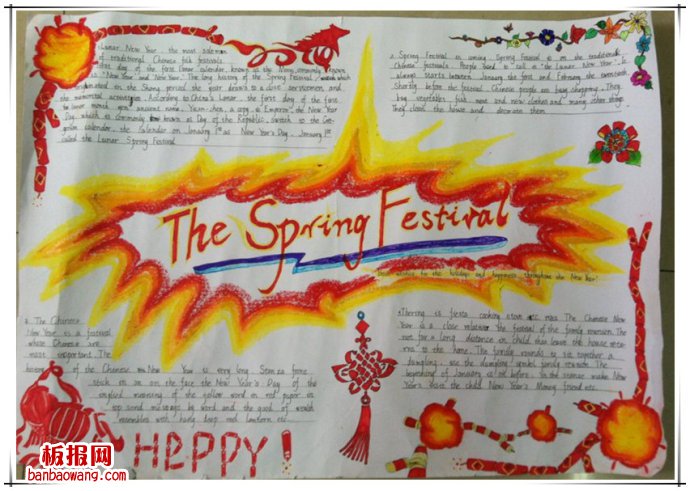 Lunar New Year, the most solemn
of traditional Chinese folk festivals
this day of the first Lunar calendar, known as the
is "New Year and New Year". The long history of the Spring Festival, which
originated in the Shang period the year
the memorial activities. According to China's Lunar, the first day of the first
lunar month was ancient name, Yuan-chen, a
Day, which is commonly known as Day of the Republic, switch to the Gre-
gorian calendar, the Calendar on January 1st as New Year's Day, January 1st
called the Lunar Spring Festival
Spring Festival is coming. Spring Festival is on the traditional
Chinese festivals. People used to call it "the Lunar New Year". It
always starts between January the first and February the
Shortly before the festival Chinese people are busy shopping. They
buy vegetables, fish, meat and new clothes and many other things
They clean the house and decorate them
The Spring Festival
Best wishes for the holidays and happiness throughout the New Year!
The Chinese
New Year is a festival
whose Chinese are
most important. The
history of the Chinese New Year is very long.
stick on the face the New Year's Day of the
original meaning of the yellow word in red paper in
top send message by word and the good of wealth
resembles with hang deep red lantern etc.
is fiesta cooking stove etc. rises The Chinese New
Year is a close relative the festival of the family reunion. The
not for a long distance in child then leave the house
to the home. The family rounds to sit together a
dumpling, use the dumpling symbol family reunion. The
beginning of January is old before. In the make New
Year's, the child New Year's Money, friend etc.
HEPPY!
板报网
banbaowang.com